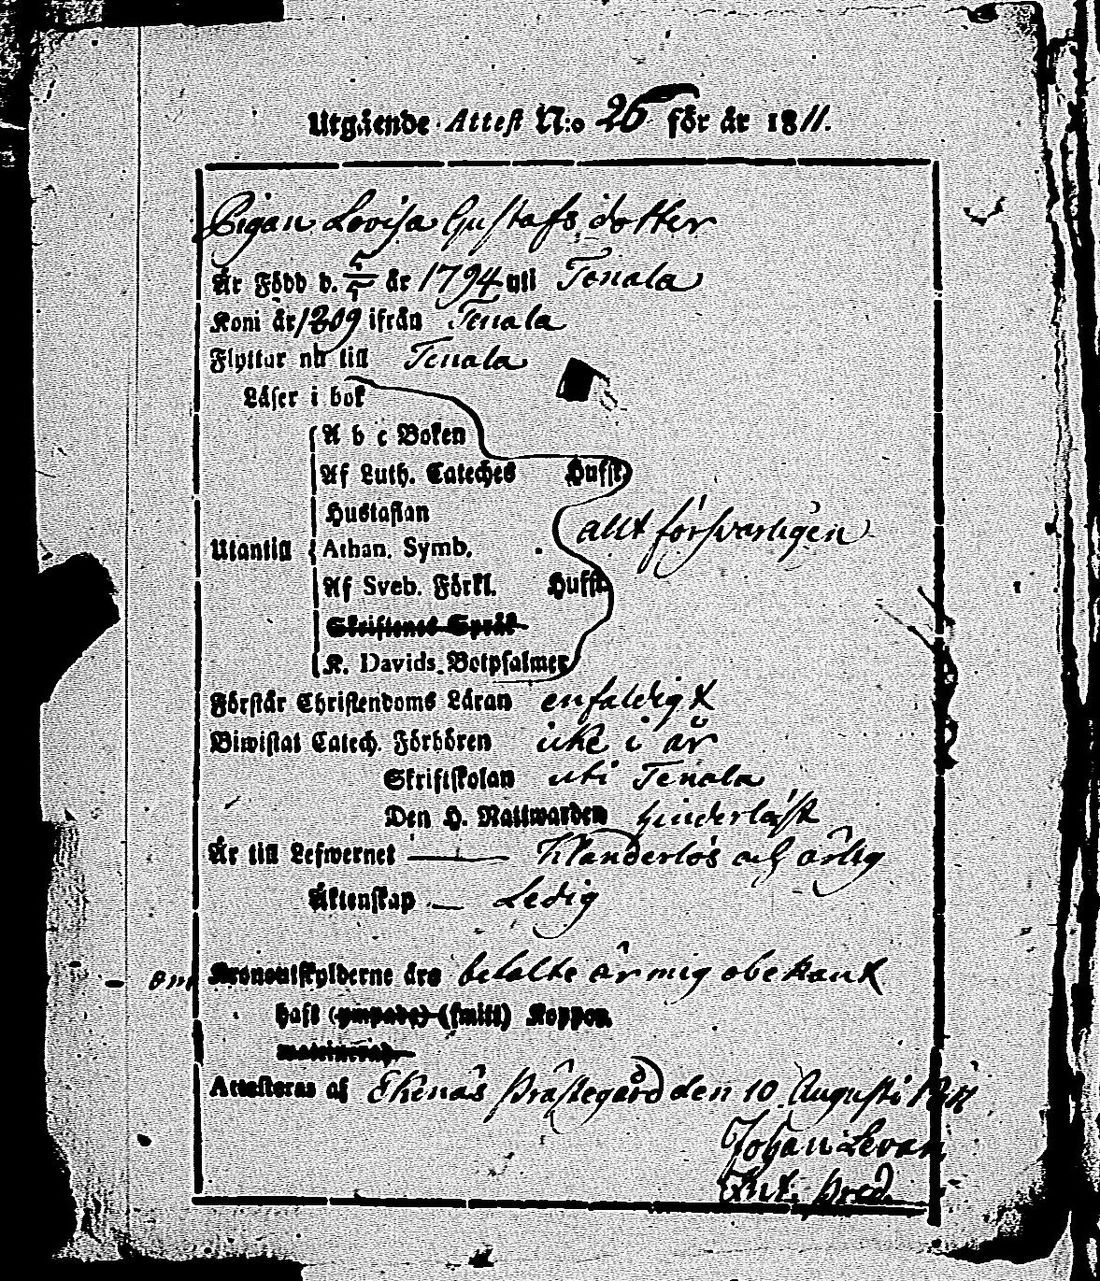 Utgående Attest N:o 26 för år 1811.
Pigan Lovisa Gustafs dotter
Är Född d. 5/5 år 1794 uti Tenala
Kom år 1809 ifrån Tenala
Flyttar nu till Tenala
Läser i bok
A b c Boken
Af Luth. Cateches Hufst.
Hustaflan
allt försvarligen
Utantill Athan. Symb.
Af Sveb. Förkl. Hufst.
Skriftenes Språk
K. Davids Botpsalmer
Förstår Christendoms Läran enfaldigt
Biwistat Catech. Förhören icke i år
Skriftskolan uti Tenala
Den H. Nattwarden hinderlöst
Är till Lefwernet Klanderlös och ärlig
Äktenskap Ledig
om Kronoutskylderne äro betalte är mig obekant
haft (ympade) (smitt) Koppor
Attesteras af Ekenäs Prästegård den 10 Augusti 1811
Johan Levan
Pred.